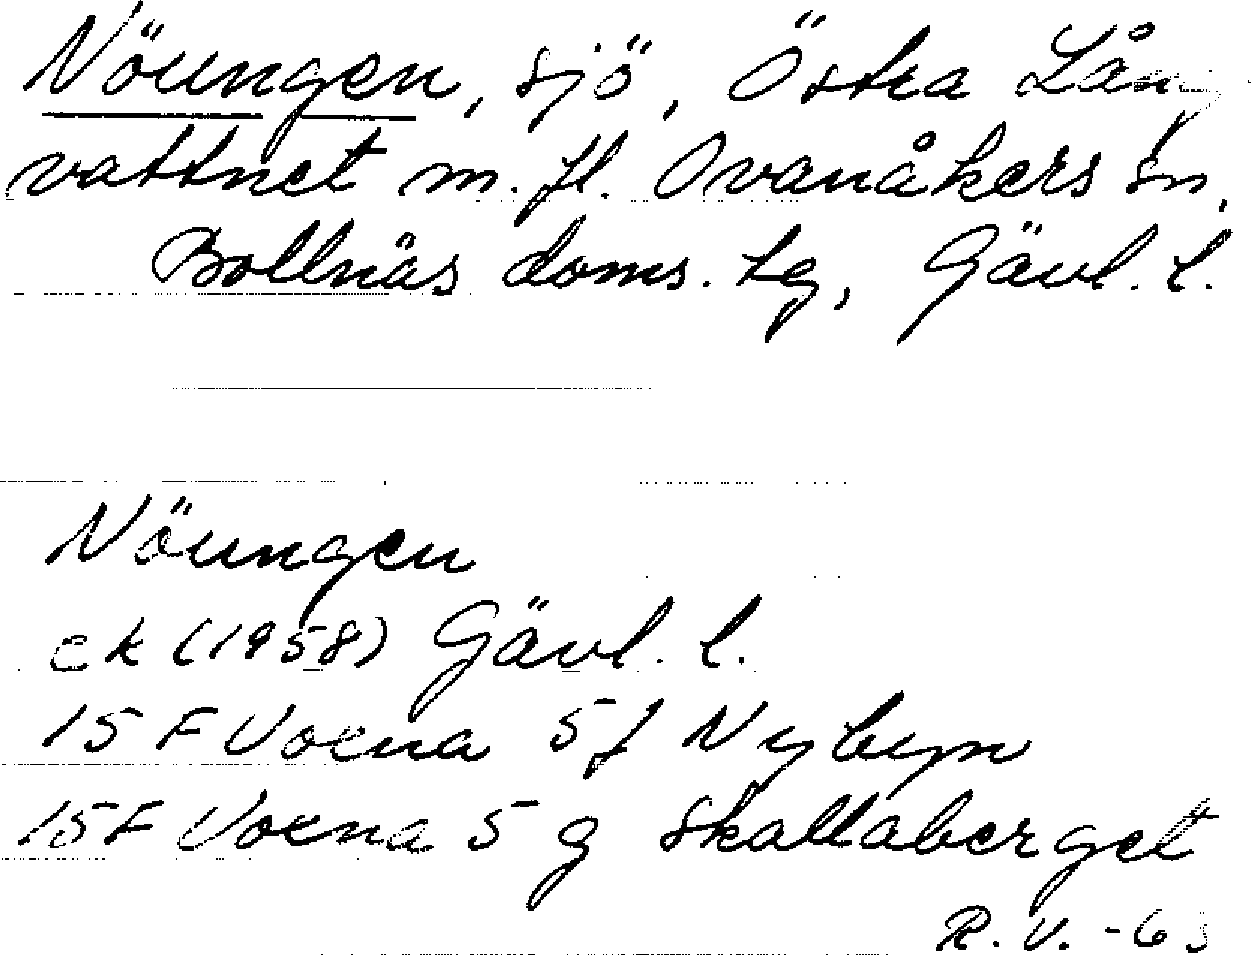 Nöungen, sjö, Östra Lång
vattnet m. fl. Ovanåkers sn,
Bollnäs doms. tg, Gävl. l.
Nöungen
ek (1958) Gävl. l.
15 F Voxna 5 f Nybyn
15 F Voxna 5 g Skallaberget
R. V. -63